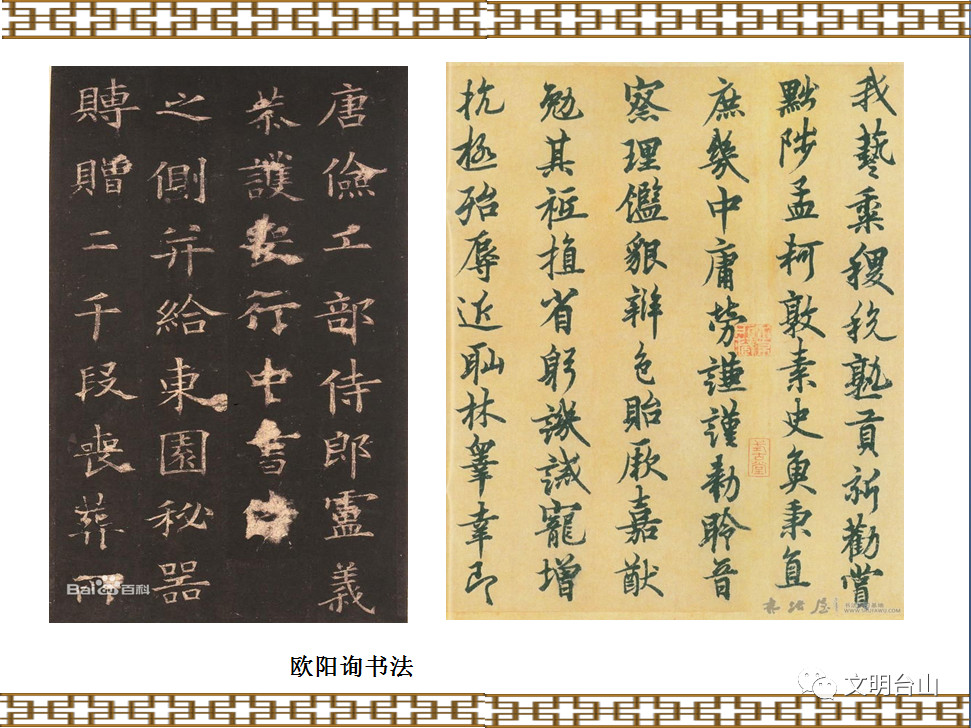 唐儉工部侍郎盧義
恭護喪行中書
之側并給東園秘器
賻贈二千段喪葬
我藝黍稷稅熟貢新勸賞
黜陟孟軻敦素史魚秉直
庶幾中庸勞謙謹勑聆音
察理鑑貌辨色貽厥嘉猷
勉其祗植省躬譏誡寵增
抗極殆辱近耻林睾幸即
Bai百科
书法屋
欧阳询书法
文明台山